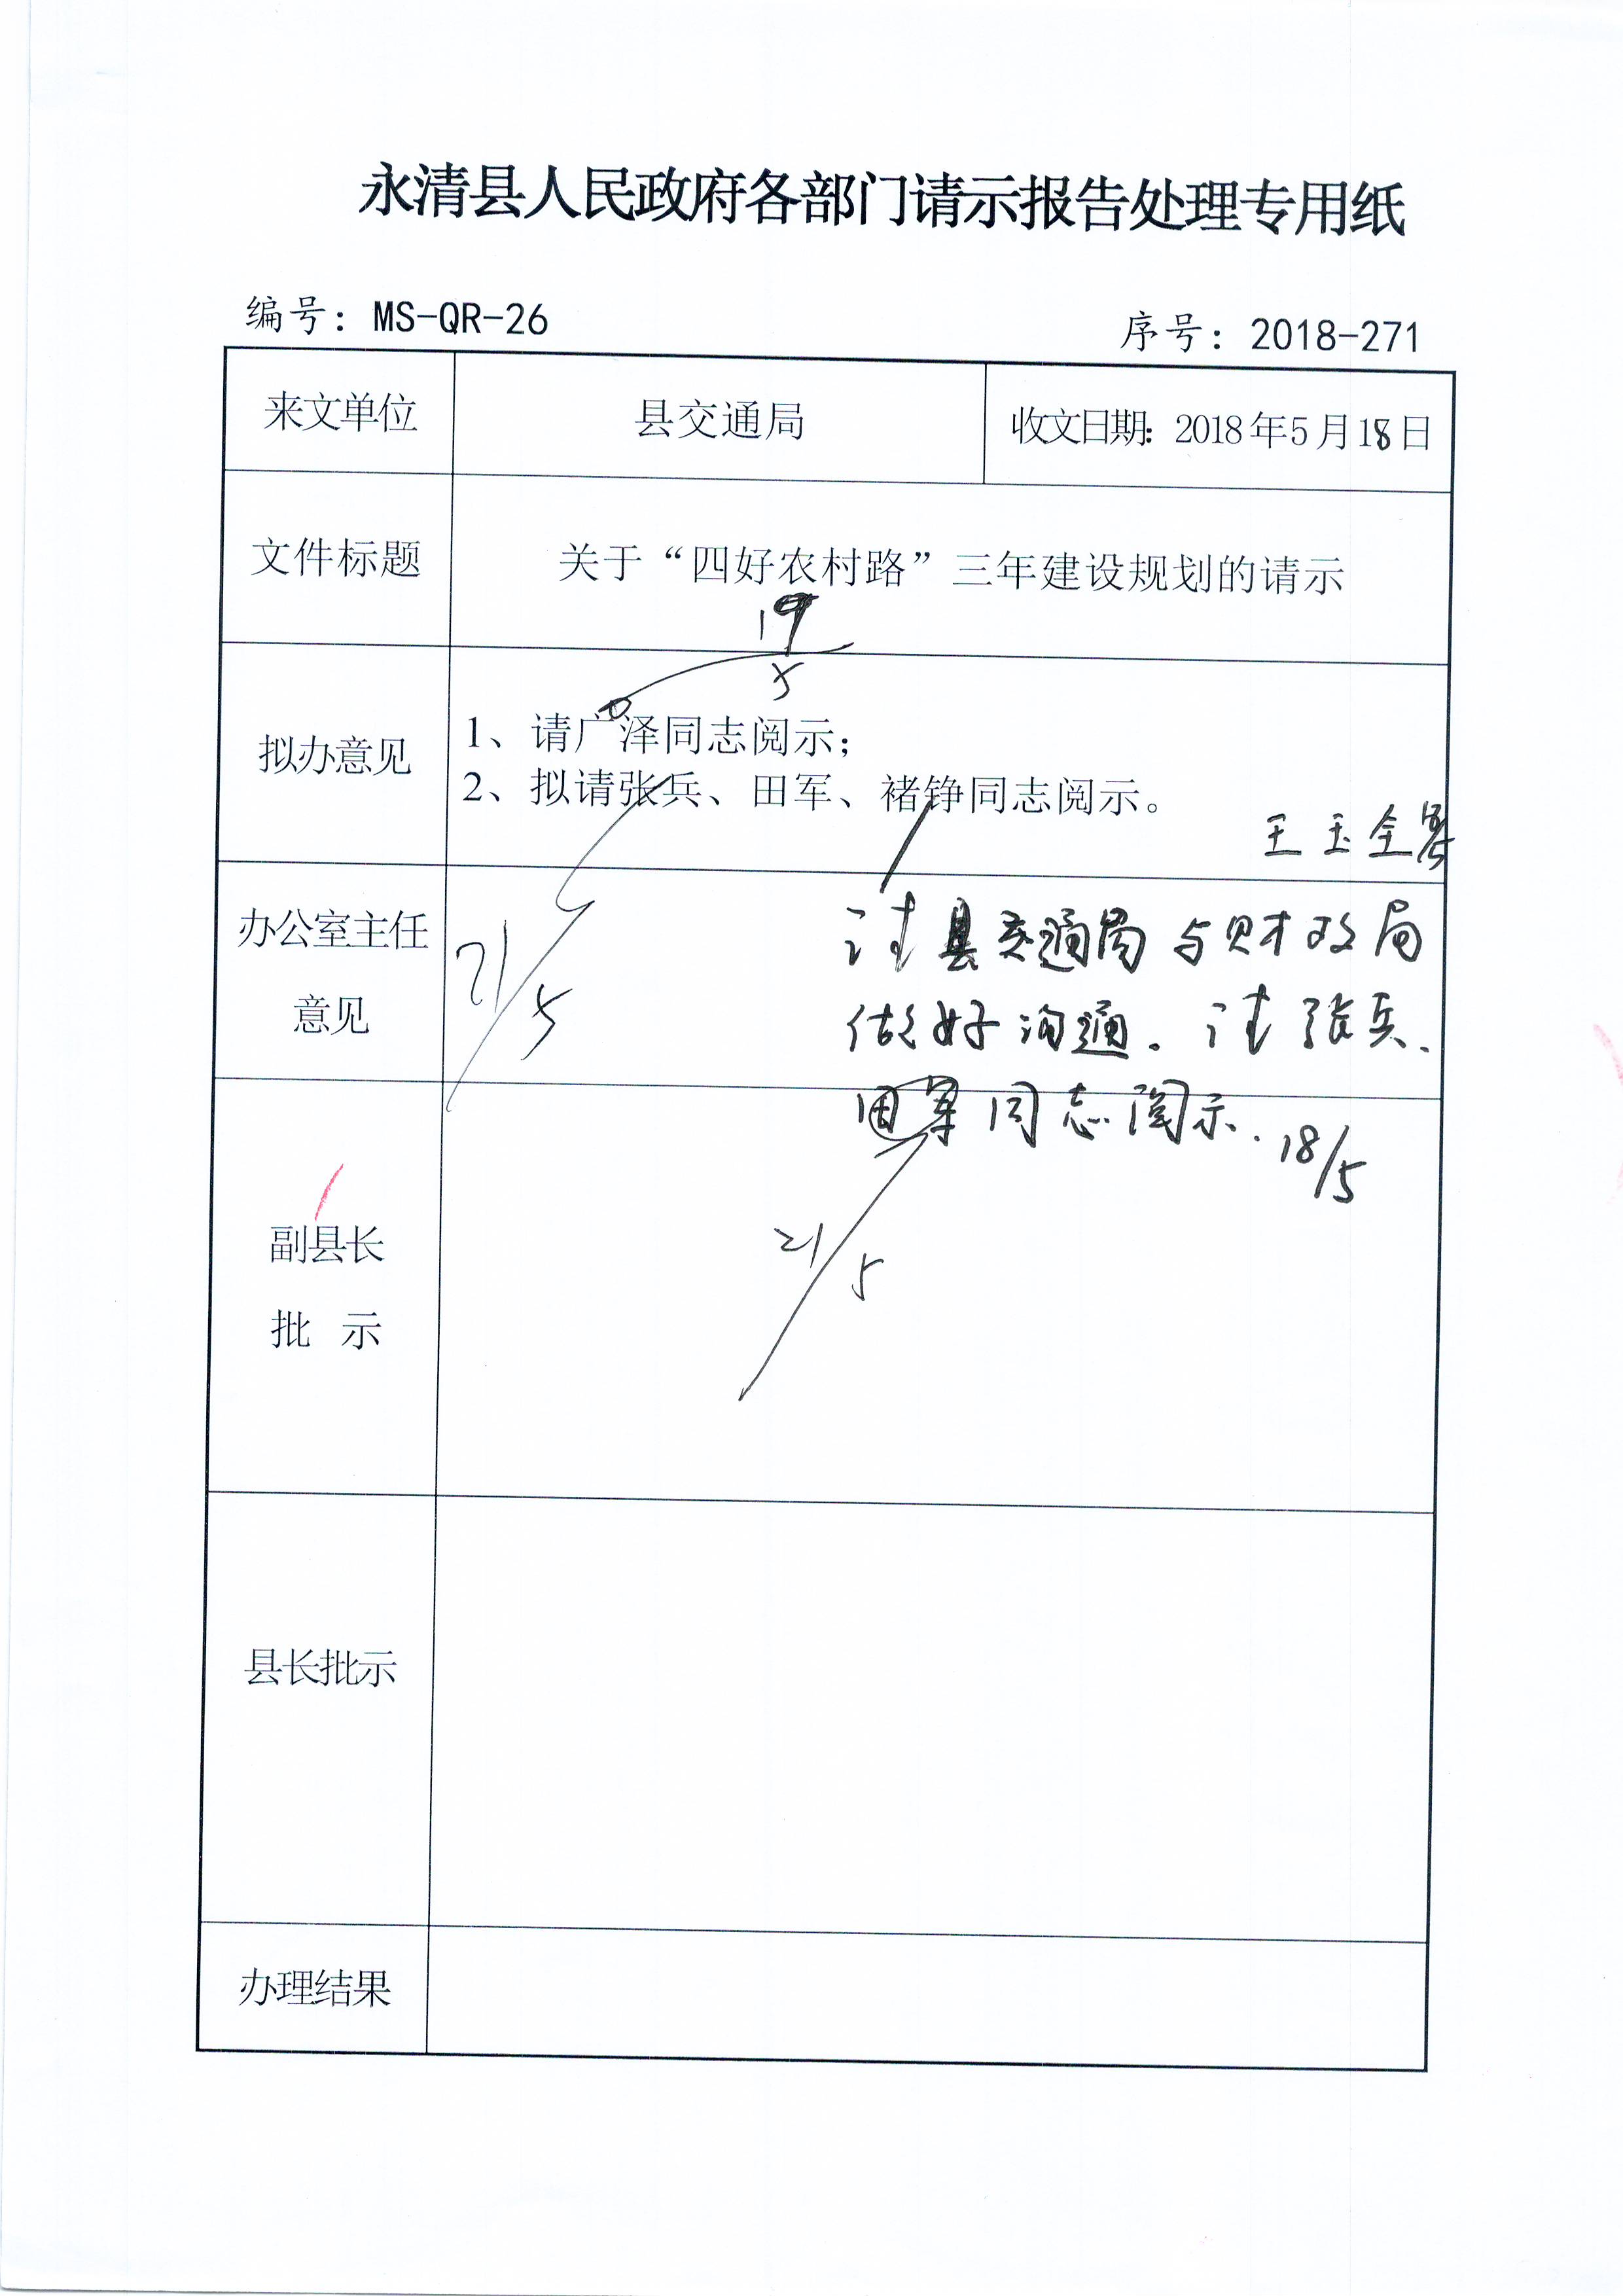 永清县人民政府各部门请示报告处理专用纸
编号：MS-QR-26
序号：2018-271
来文单位
县交通局
收文日期：2018年5月18日
文件标题
关于“四好农村路”三年建设规划的请示
19
5
拟办意见
1、请广泽同志阅示；
2、拟请张兵、田军、褚铮同志阅示。
王玉全
办公室主任
意见
21/5
请县交通局与财政局
做好沟通。请张兵、
田军同志阅示.18/5
副县长
批 示
21/5
县长批示
办理结果